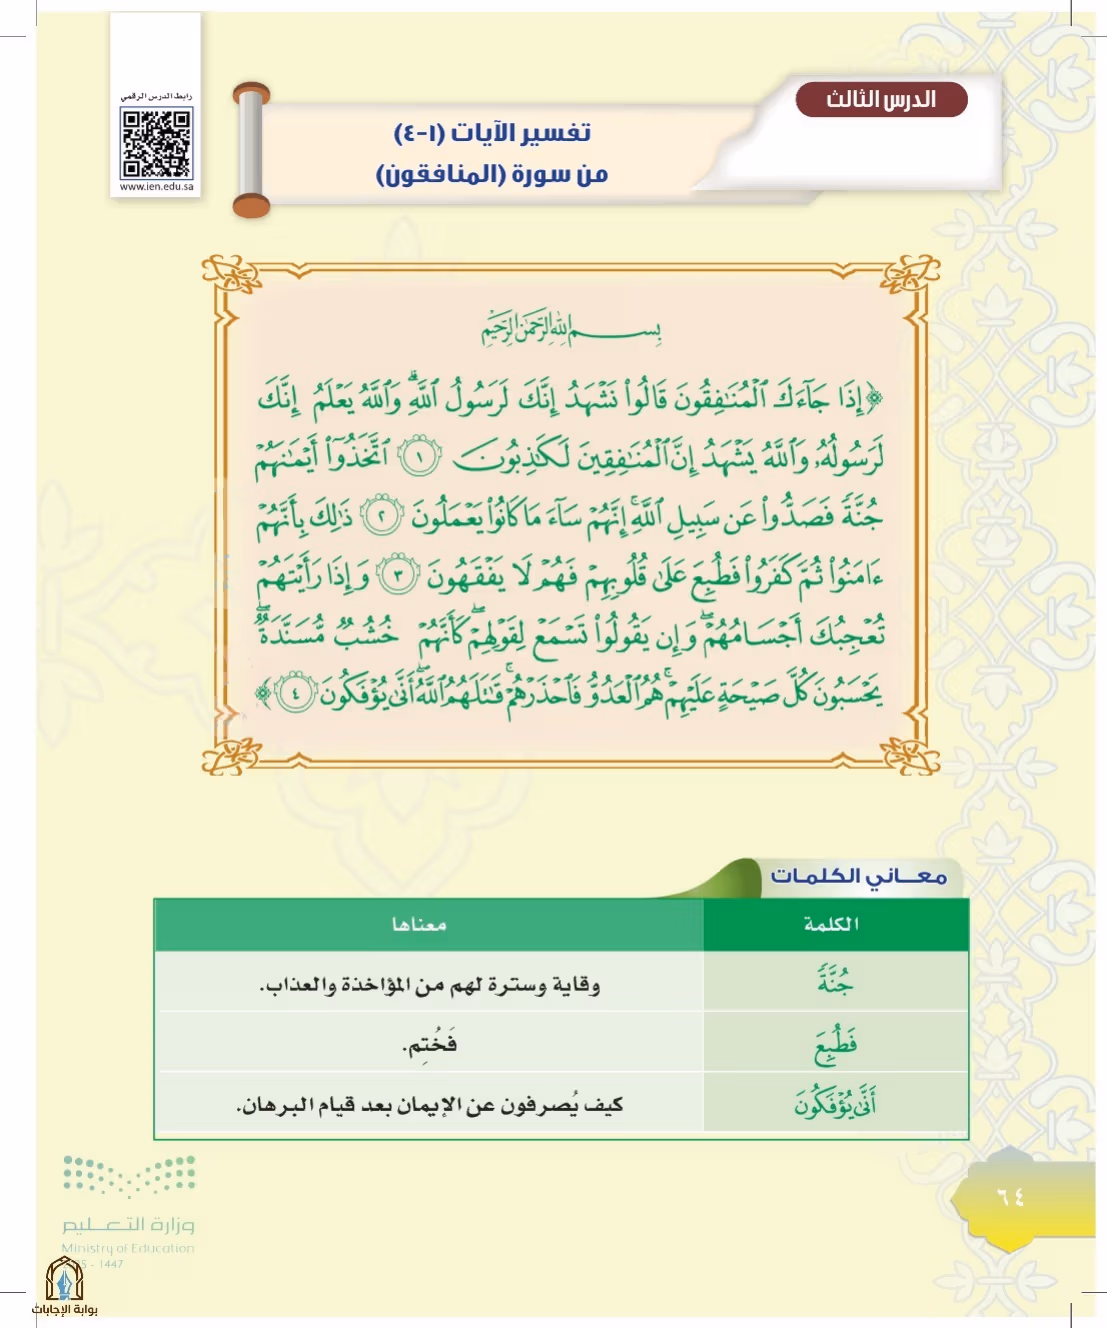 رابط الدرس الرقمي
www.ien.edu.sa
الدرس الثالث
تفسير الآيات (١-٤)
من سورة (المنافقون)
بِسْمِ اللَّهِ الرَّحْمَٰنِ الرَّحِيمِ
﴿إِذَا جَآءَكَ ٱلْمُنَٰفِقُونَ قَالُوا۟ نَشْهَدُ إِنَّكَ لَرَسُولُ ٱللَّهِۗ وَٱللَّهُ يَعْلَمُ إِنَّكَ
لَرَسُولُهُۥ وَٱللَّهُ يَشْهَدُ إِنَّ ٱلْمُنَٰفِقِينَ لَكَٰذِبُونَ ١ ٱتَّخَذُوٓا۟ أَيْمَٰنَهُمْ
جُنَّةً فَصَدُّوا۟ عَن سَبِيلِ ٱللَّهِۚ إِنَّهُمْ سَآءَ مَا كَانُوا۟ يَعْمَلُونَ ٢ ذَٰلِكَ بِأَنَّهُمْ
ءَامَنُوا۟ ثُمَّ كَفَرُوا۟ فَطُبِعَ عَلَىٰ قُلُوبِهِمْ فَهُمْ لَا يَفْقَهُونَ ٣ وَإِذَا رَأَيْتَهُمْ
تُعْجِبُكَ أَجْسَامُهُمْۖ وَإِن يَقُولُوا۟ تَسْمَعْ لِقَوْلِهِمْۖ كَأَنَّهُمْ خُشُبٌ مُّسَنَّدَةٌۖ
يَحْسَبُونَ كُلَّ صَيْحَةٍ عَلَيْهِمْۚ هُمُ ٱلْعَدُوُّ فَٱحْذَرْهُمْۚ قَٰتَلَهُمُ ٱللَّهُۖ أَنَّىٰ يُؤْفَكُونَ ٤﴾
معـــاني الكلمـات
الكلمة معناها
جُنَّةً وقاية وسترة لهم من المؤاخذة والعذاب.
فَطُبِعَ فَخُتِم.
أَنَّىٰ يُؤْفَكُونَ كيف يُصرفون عن الإيمان بعد قيام البرهان.
٦٤
وزارة التعـــليم
Ministry of Education
5 - 1447
بوابة الإجابات